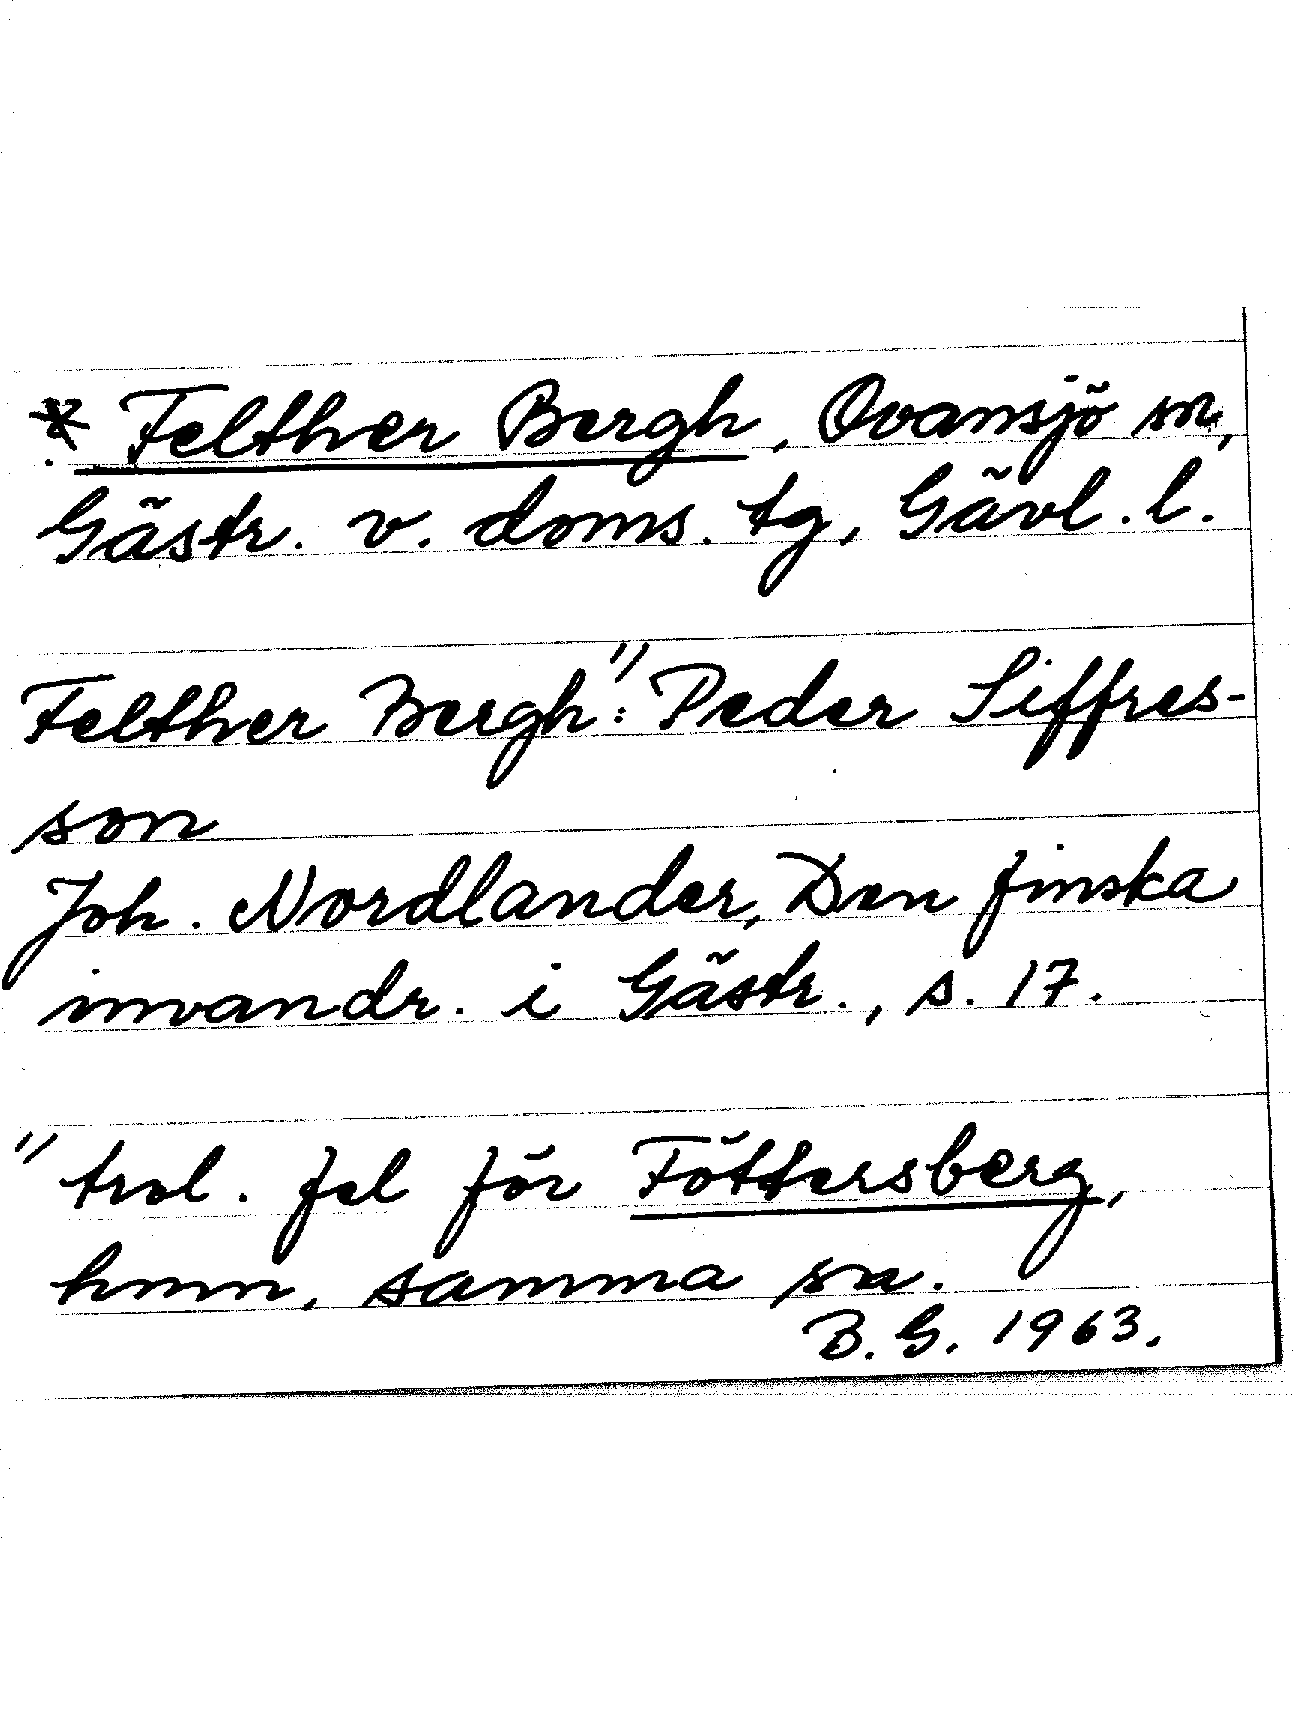 * Felther Bergh, Ovansjö sn,
Gästr. v. doms. tg, Gävl. l.
Felther Bergh¹⁾: Peder Siffres-
son
Joh. Nordlander, Den finska
invandr. i Gästr., s. 17.
¹⁾ trol. fel för Föttersberg,
hmn, samma sn.
B. G. 1963.